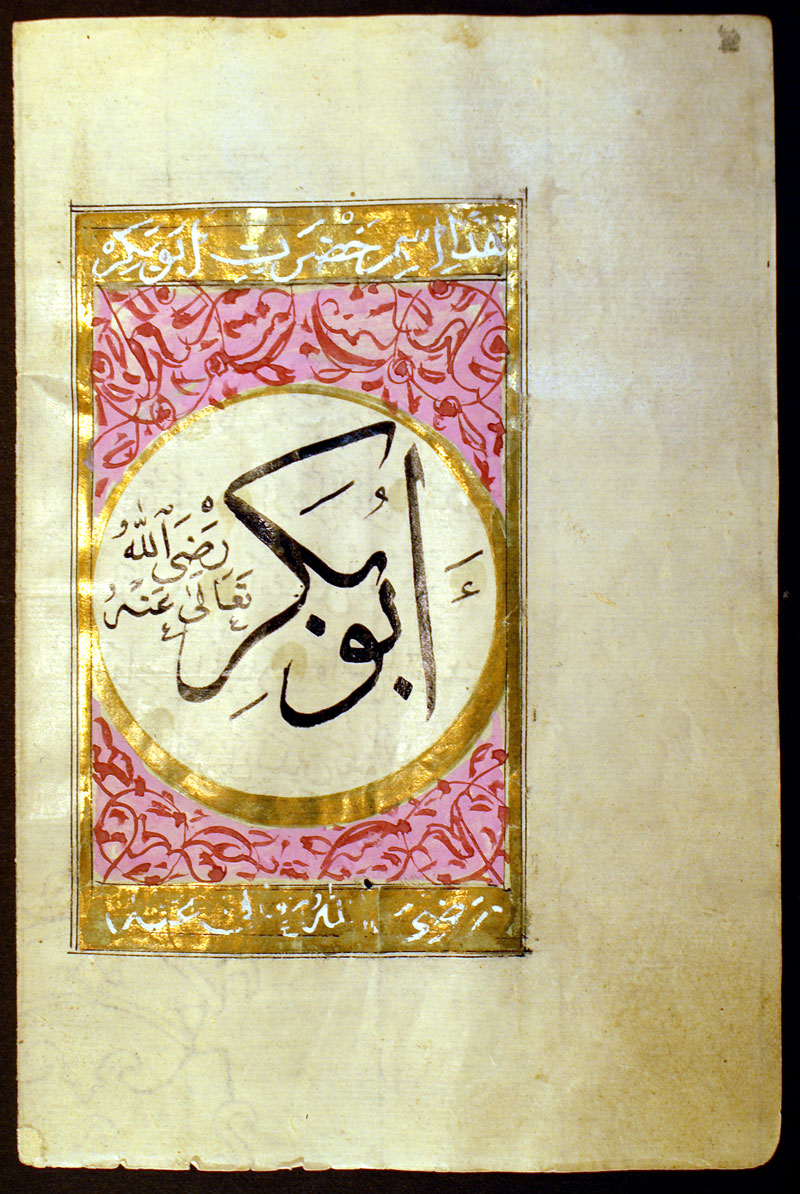 هَذَا اِسْمِ حَضْرَتِ اَبُو بَكِرْ
اَبُو بَكِرْ
رَضِىَ اللّٰهُ
تَعَالٰى عَنْهُ
رَضِىَ اللهُ تعالى عنه